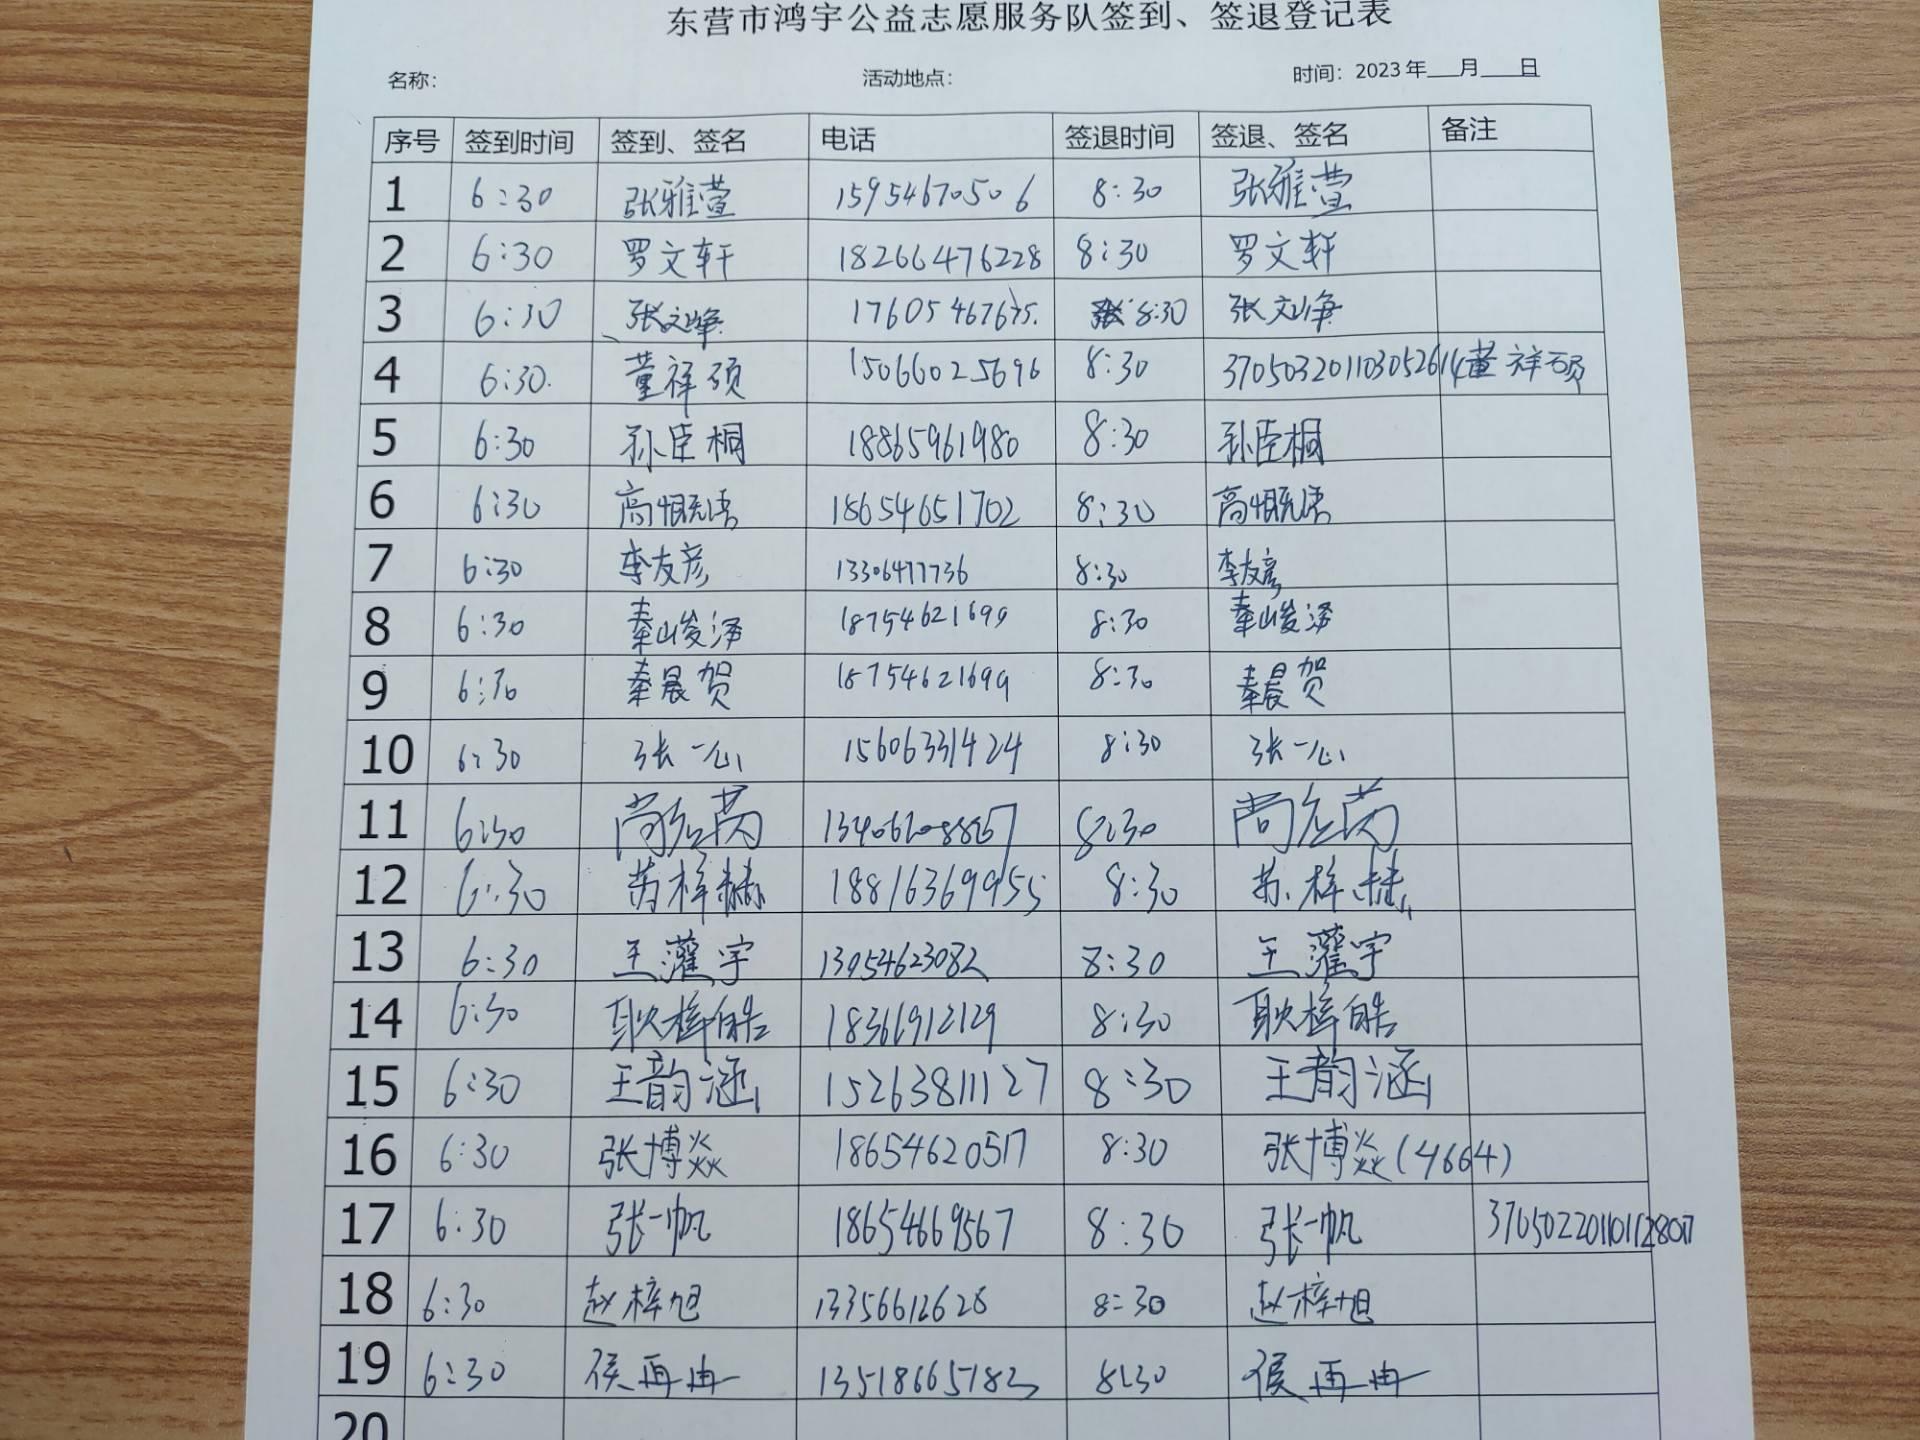 东营市鸿宇公益志愿服务队签到、签退登记表
名称： 活动地点： 时间：2023年___月___日
序号 签到时间 签到、签名 电话 签退时间 签退、签名 备注
1 6:30 张雅萱 15954670506 8:30 张雅萱
2 6:30 罗文轩 18266476228 8:30 罗文轩
3 6:30 张文峥 8:30 张文峥
4 6:30. 董祥硕 15066025696 8:30 370503201103052614董祥硕
5 6:30 孙臣桐 18865961980 8:30 孙臣桐
6 6:30 高慨语 18654651702 8:30 高慨语
7 6:30 李友彦 13306477736 8:30 李友彦
8 6:30 秦峻泽 18754621699 8:30 秦峻泽
9 6:30 秦晨贺 18754621699 8:30 秦晨贺
10 6:30 张一心 15606331424 8:30 张一心
11 6:30 8:30
12 6:30 18816369955 8:30
13 6:30 王灌宇 13954623082 8:30 王灌宇
14 6:30 耿梓皓 18366912129 8:30 耿梓皓
15 6:30 王韵涵 15263811127 8:30 王韵涵
16 6:30 张博焱 18654620517 8:30 张博焱(4664)
17 6:30 张一帆 18654669567 8:30 张一帆 370502201101128017
18 6:30 赵梓旭 13356612628 8:30 赵梓旭
19 6:30 侯再冉 13518665182 8:30 侯再冉
20